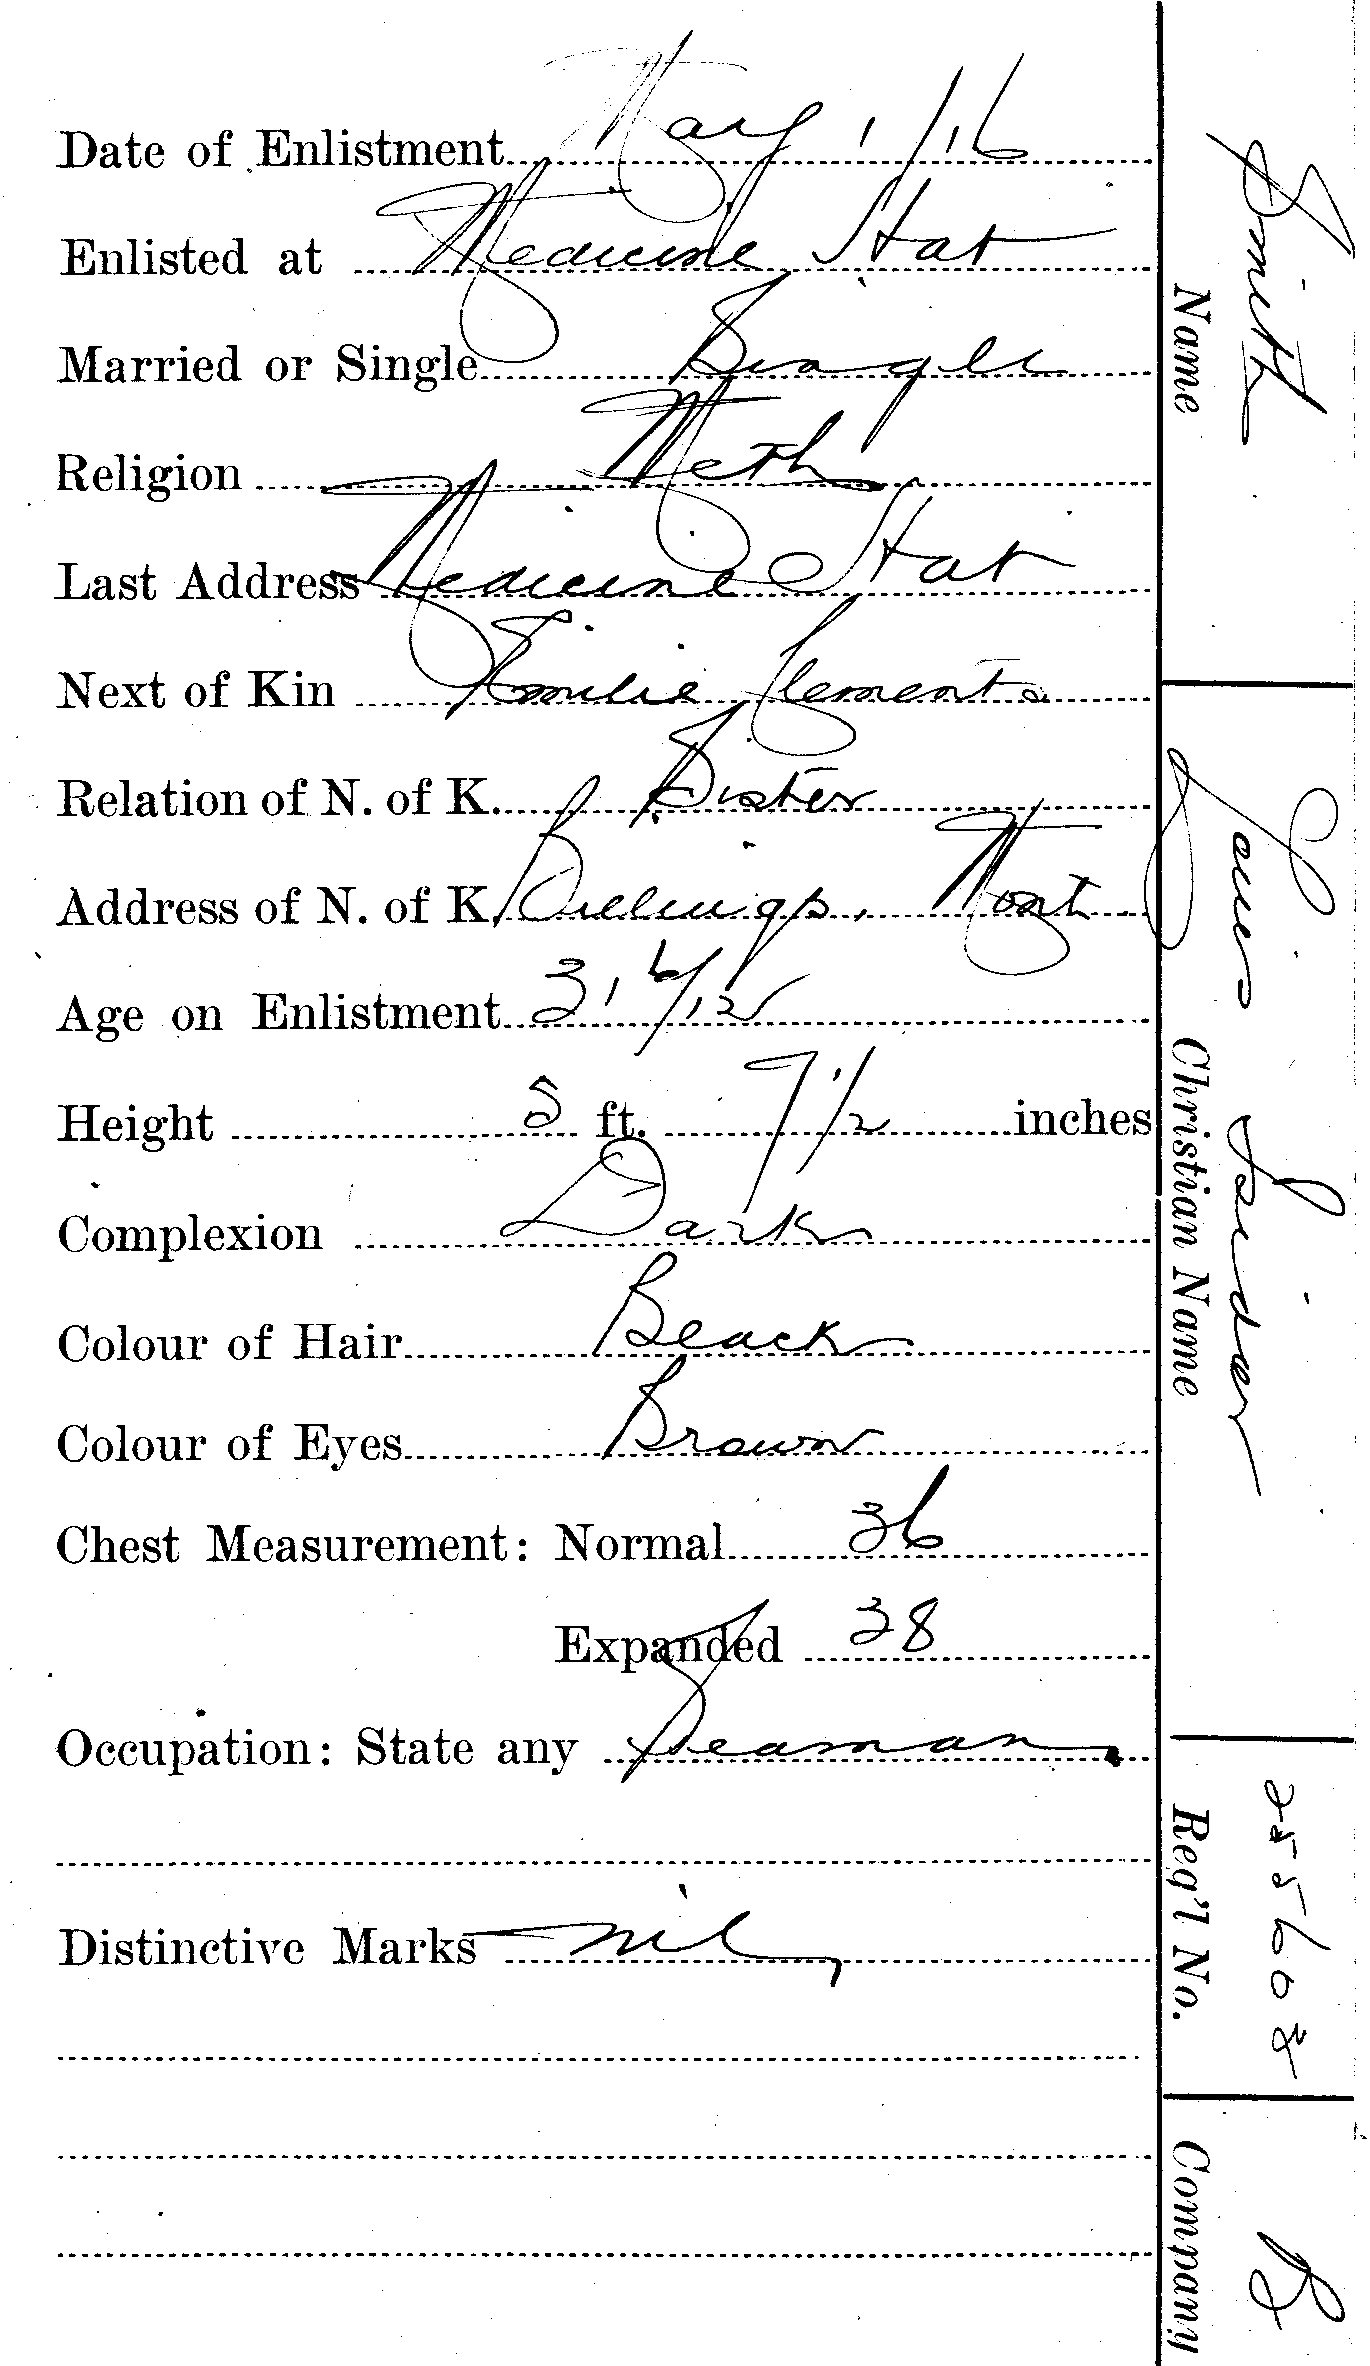 Date of Enlistment May 1/16
Enlisted at Medicine Hat
Married or Single Single
Religion Meth
Last Address Medicine Hat
Next of Kin Emilie Clements
Relation of N. of K. Sister
Address of N. of K. Billings, Mont
Age on Enlistment 31 6/12
Height 5 ft. 7 1/2 inches
Complexion Dark
Colour of Hair Black
Colour of Eyes Brown
Chest Measurement: Normal 36
Expanded 38
Occupation: State any Seaman
Distinctive Marks nil
Smith
Name
Louis
Christian Name
Reg'l No.
Company
B